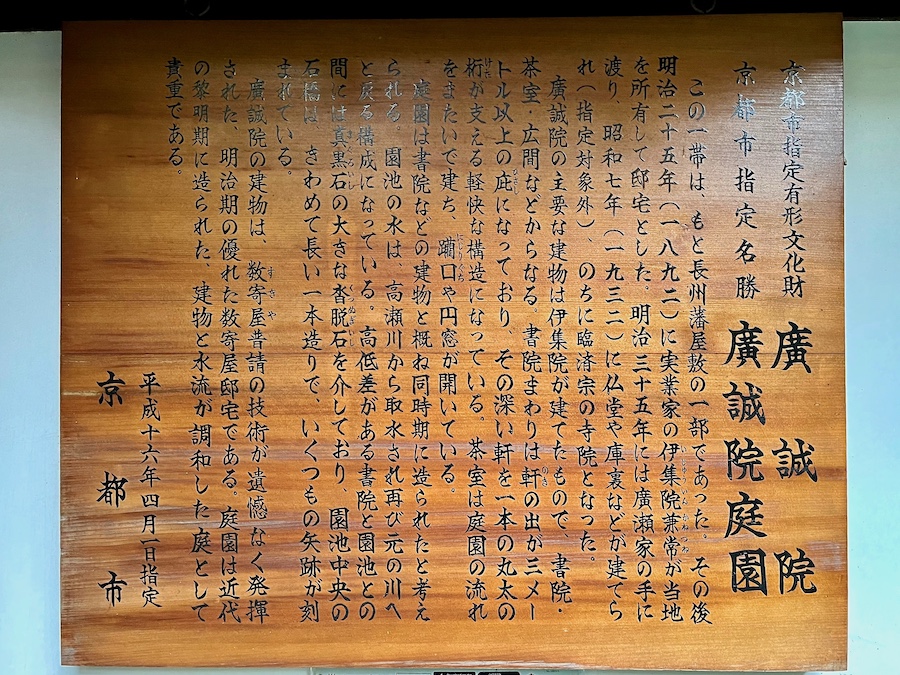 京都市指定有形文化財 廣誠院
京都市指定名勝 廣誠院庭園
この一帯は、もと長州藩屋敷の一部であった。その後
明治二十五年（一八九二）に実業家の伊集院兼常が当地
を所有して邸宅とした。明治三十五年には廣瀬家の手に
渡り、昭和七年（一九三二）に仏堂や庫裏などが建てら
れ（指定対象外）、のちに臨済宗の寺院となった。
廣誠院の主要な建物は伊集院が建てたもので、書院・
茶室・広間などからなる。書院まわりは軒の出が三メー
トル以上の庇になっており、その深い軒を一本の丸太の
桁が支える軽快な構造になっている。茶室は庭園の流れ
をまたいで建ち、躙口や円窓が開いている。
庭園は書院などの建物と概ね同時期に造られたと考え
られる。園池の水は、高瀬川から取水され再び元の川へ
と戻る構成になっている。高低差がある書院と園池との
間には真黒石の大きな沓脱石を介しており、園池中央の
石橋は、きわめて長い一本造りで、いくつもの矢跡が刻
まれている。
廣誠院の建物は、数寄屋普請の技術が遺憾なく発揮
された、明治期の優れた数寄屋邸宅である。庭園は近代
の黎明期に造られた、建物と水流が調和した庭として
貴重である。
平成十六年四月一日指定
京都市